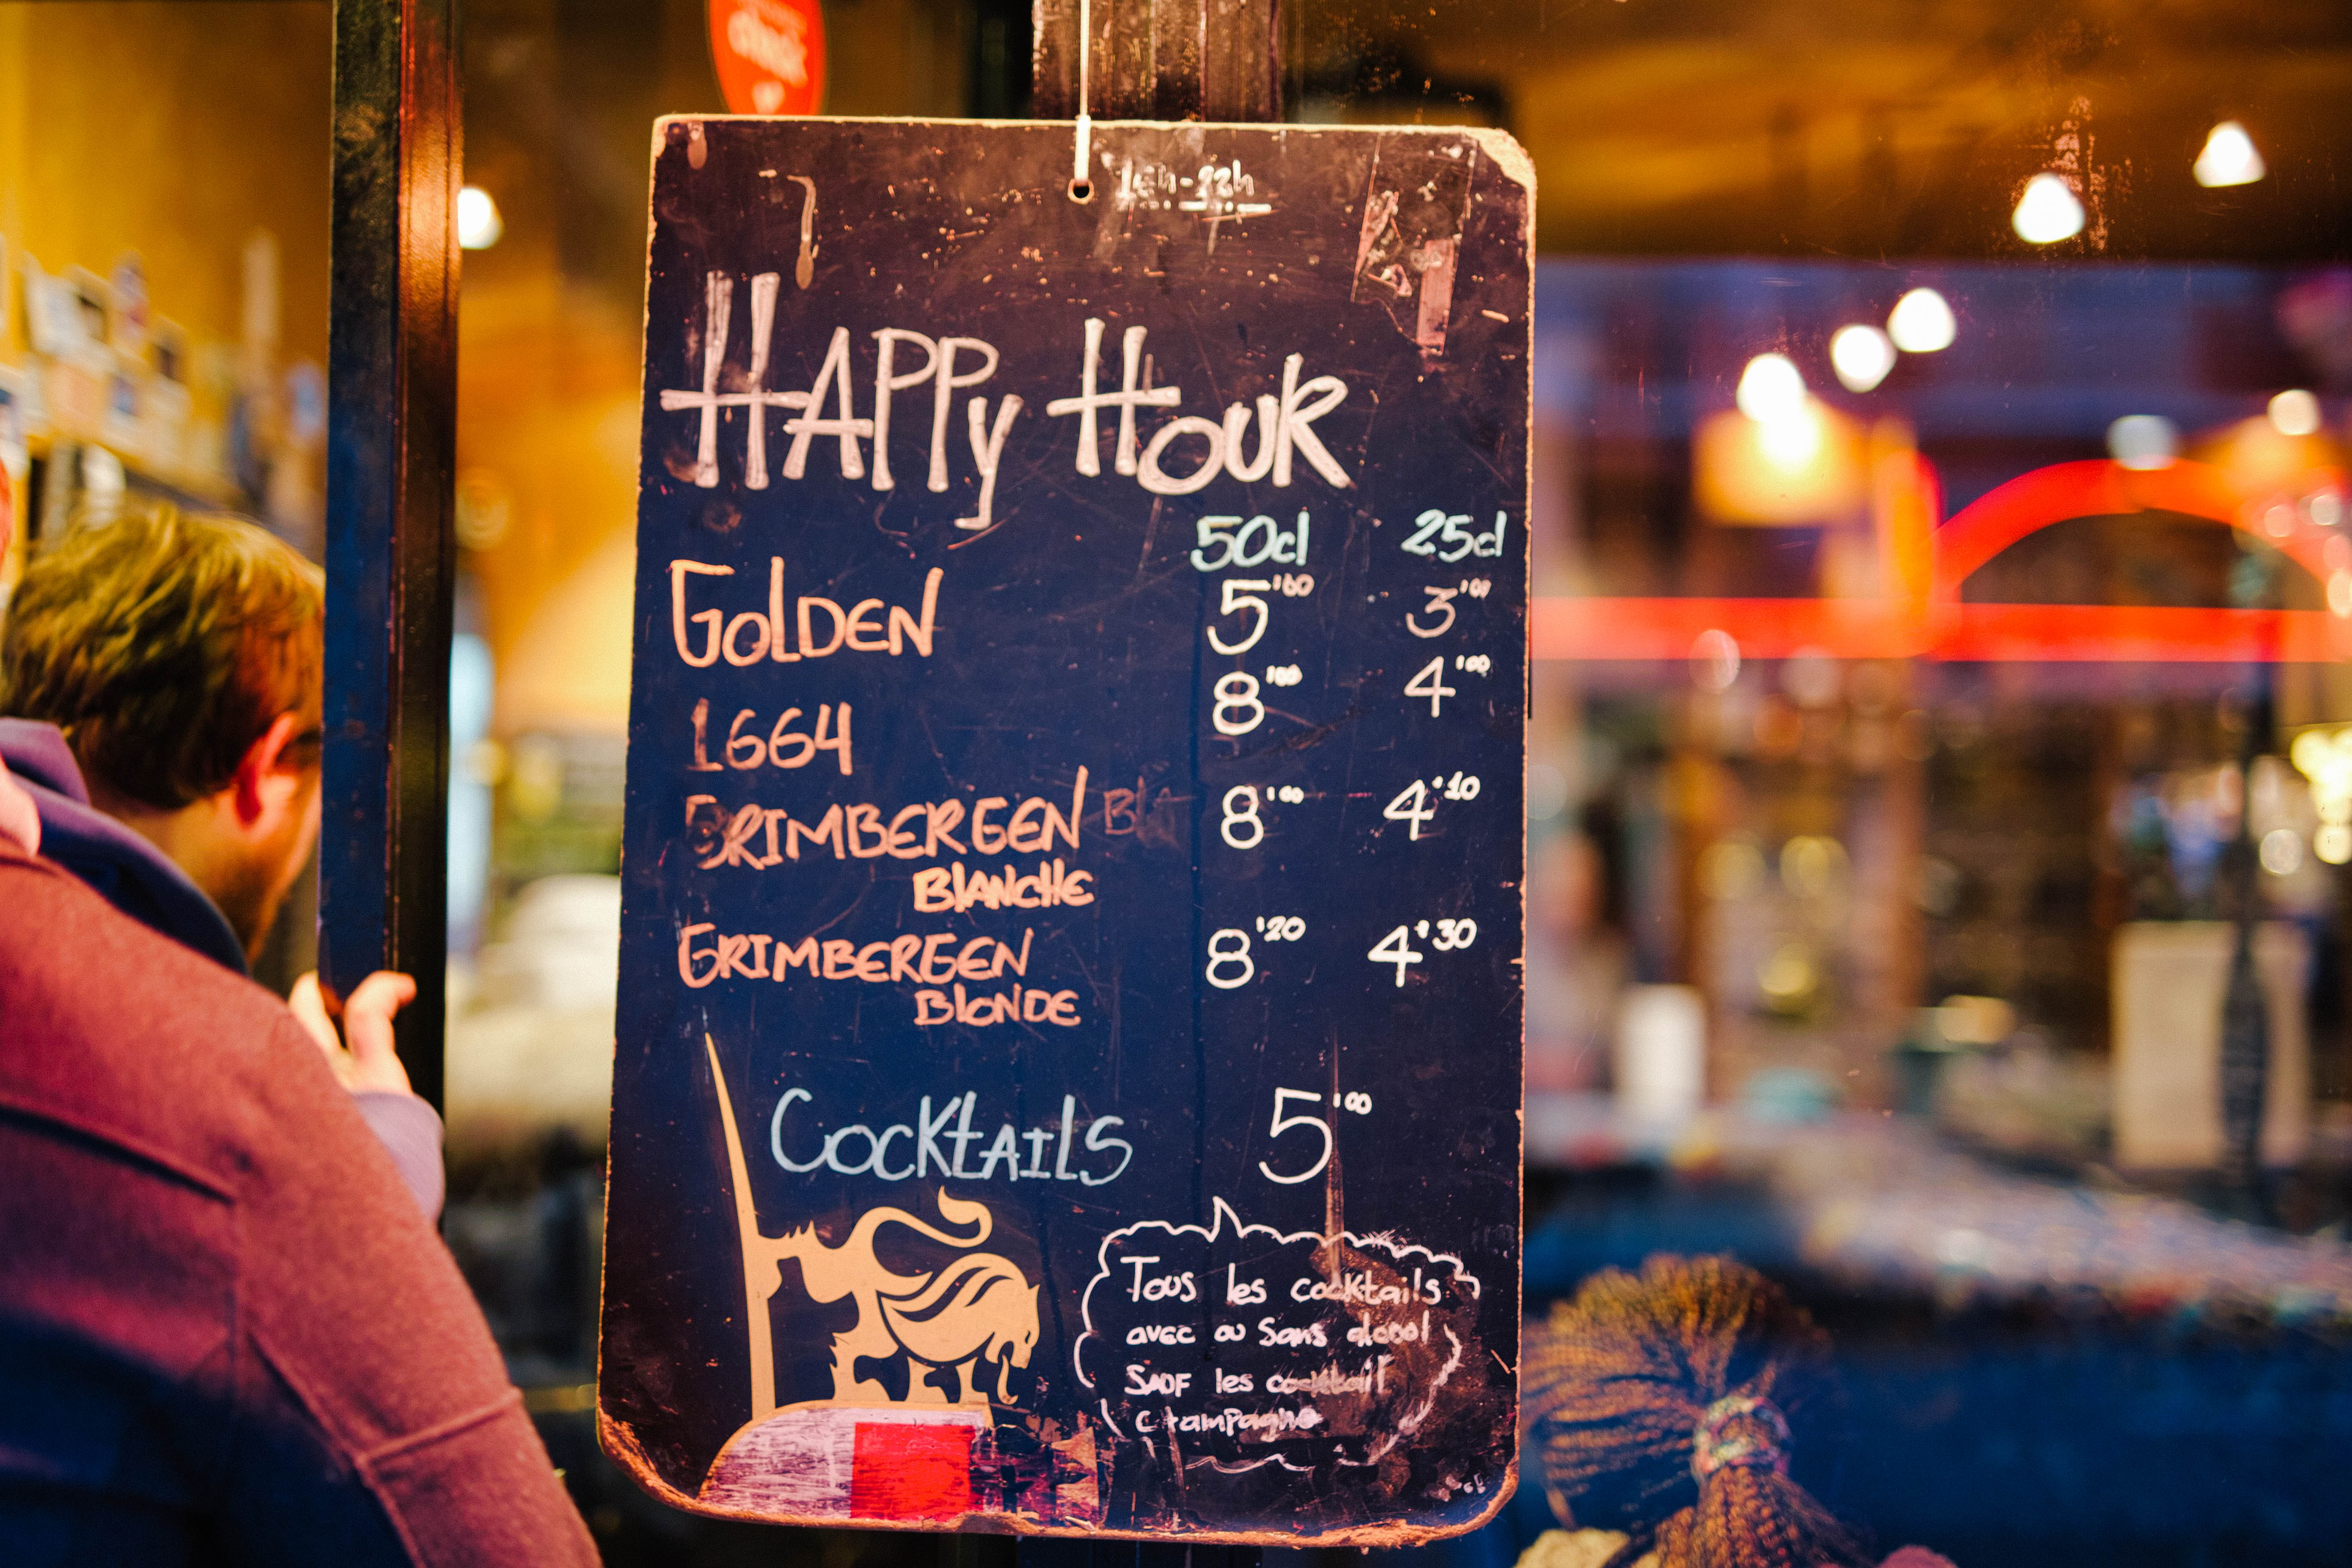 16h-22h
HAPPy HOUR
50cl 25cl
GOLDEN 5'00 3'00
1664 8'00 4'00
GRIMBERGEN 8'00 4'10
BLANCHE
GRIMBERGEN 8'20 4'30
BLONDE
COCKtAILS 5'00
Tous les cocktails
avec ou Sans alcool
SAUF les cocktail
Champagne